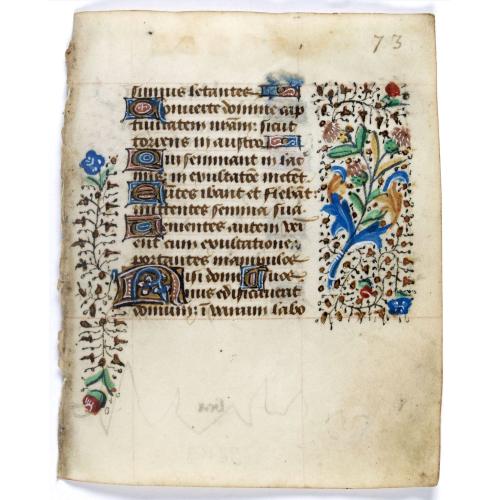 73
simus letantes
Converte domine cap
tiuitatem nram: sicut
torrens in austro
Qui seminant in lac
mis: in exultatõe metet
Euntes ibant et flebãt:
mittentes semina sua
Venientes autem ve
nient cum exultatione:
portantes manipulos
Nisi domi suos
nus edificauerit
domum: i vanum labo